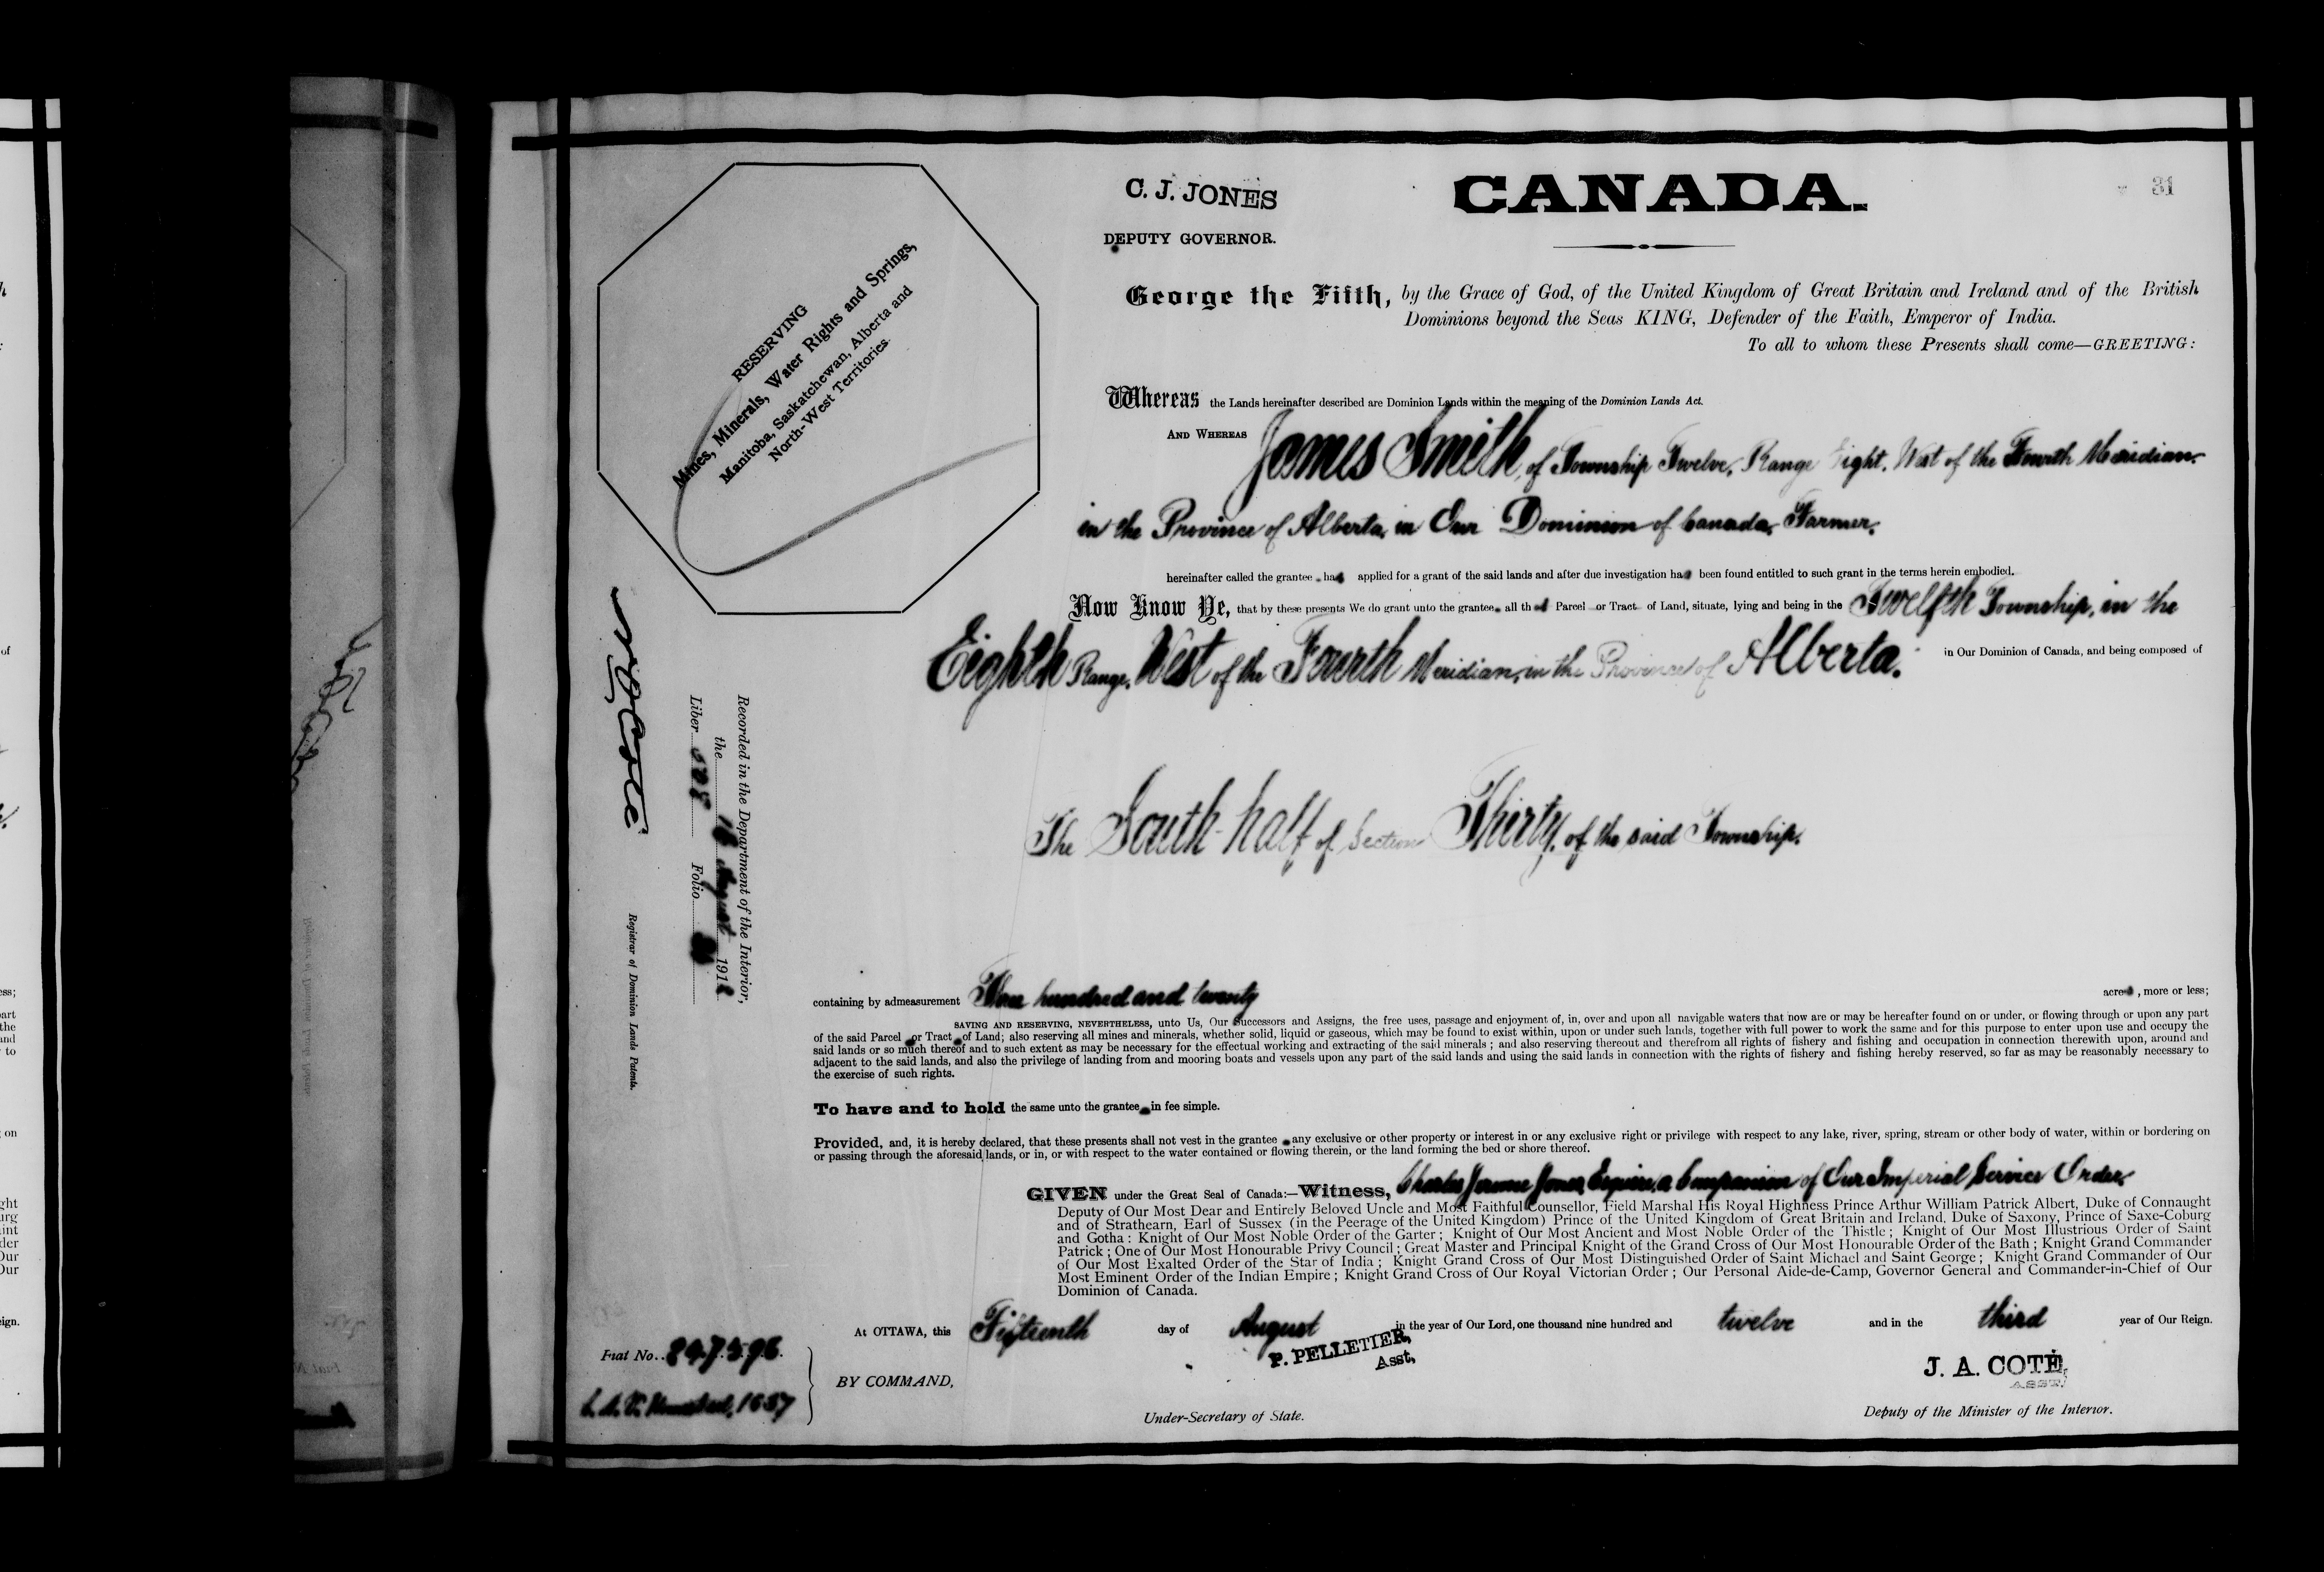 C. J. JONES
DEPUTY GOVERNOR.
CANADA.
31
RESERVING
Mines, Minerals, Water Rights and Springs,
Manitoba, Saskatchewan, Alberta and
North-West Territories.
George the Fifth, by the Grace of God, of the United Kingdom of Great Britain and Ireland and of the British
Dominions beyond the Seas KING, Defender of the Faith, Emperor of India.
To all to whom these Presents shall come—GREETING:
Whereas the Lands hereinafter described are Dominion Lands within the meaning of the Dominion Lands Act.
AND WHEREAS James Smith, of Township Twelve, Range Eight, West of the Fourth Meridian
in the Province of Alberta, in Our Dominion of Canada, Farmer,
hereinafter called the grantee has applied for a grant of the said lands and after due investigation has been found entitled to such grant in the terms herein embodied.
Now Know Ye, that by these presents We do grant unto the grantee all that Parcel or Tract of Land, situate, lying and being in the Twelfth Township, in the
Eighth Range, West of the Fourth Meridian, in the Province of Alberta. in Our Dominion of Canada, and being composed of
The South-half of Section Thirty, of the said Township.
containing by admeasurement Three hundred and twenty acres, more or less;
SAVING AND RESERVING, NEVERTHELESS, unto Us, Our Successors and Assigns, the free uses, passage and enjoyment of, in, over and upon all navigable waters that now are or may be hereafter found on or under, or flowing through or upon any part
of the said Parcel or Tract of Land; also reserving all mines and minerals, whether solid, liquid or gaseous, which may be found to exist within, upon or under such lands, together with full power to work the same and for this purpose to enter upon use and occupy the
said lands or so much thereof and to such extent as may be necessary for the effectual working and extracting of the said minerals; and also reserving thereout and therefrom all rights of fishery and fishing and occupation in connection therewith upon, around and
adjacent to the said lands, and also the privilege of landing from and mooring boats and vessels upon any part of the said lands and using the said lands in connection with the rights of fishery and fishing hereby reserved, so far as may be reasonably necessary to
the exercise of such rights.
To have and to hold the same unto the grantee in fee simple.
Provided, and, it is hereby declared, that these presents shall not vest in the grantee any exclusive or other property or interest in or any exclusive right or privilege with respect to any lake, river, spring, stream or other body of water, within or bordering on
or passing through the aforesaid lands, or in, or with respect to the water contained or flowing therein, or the land forming the bed or shore thereof.
GIVEN under the Great Seal of Canada:—Witness, Charles Jerome Jones, Esquire, a Companion of Our Imperial Service Order,
Deputy of Our Most Dear and Entirely Beloved Uncle and Most Faithful Counsellor, Field Marshal His Royal Highness Prince Arthur William Patrick Albert, Duke of Connaught
and of Strathearn, Earl of Sussex (in the Peerage of the United Kingdom) Prince of the United Kingdom of Great Britain and Ireland, Duke of Saxony, Prince of Saxe-Coburg
and Gotha: Knight of Our Most Noble Order of the Garter; Knight of Our Most Ancient and Most Noble Order of the Thistle; Knight of Our Most Illustrious Order of Saint
Patrick; One of Our Most Honourable Privy Council; Great Master and Principal Knight of the Grand Cross of Our Most Honourable Order of the Bath; Knight Grand Commander
of Our Most Exalted Order of the Star of India; Knight Grand Cross of Our Most Distinguished Order of Saint Michael and Saint George; Knight Grand Commander of Our
Most Eminent Order of the Indian Empire; Knight Grand Cross of Our Royal Victorian Order; Our Personal Aide-de-Camp, Governor General and Commander-in-Chief of Our
Dominion of Canada.
At OTTAWA, this Fifteenth day of August in the year of Our Lord, one thousand nine hundred and twelve and in the third year of Our Reign.
P. PELLETIER,
Asst,
J. A. COTÉ,
ASST.
BY COMMAND,
Under-Secretary of State.
Deputy of the Minister of the Interior.
Recorded in the Department of the Interior,
the August 191
Liber Folio
N. O. Coté
Registrar of Dominion Lands Patents.
Fiat No. 247596
1637